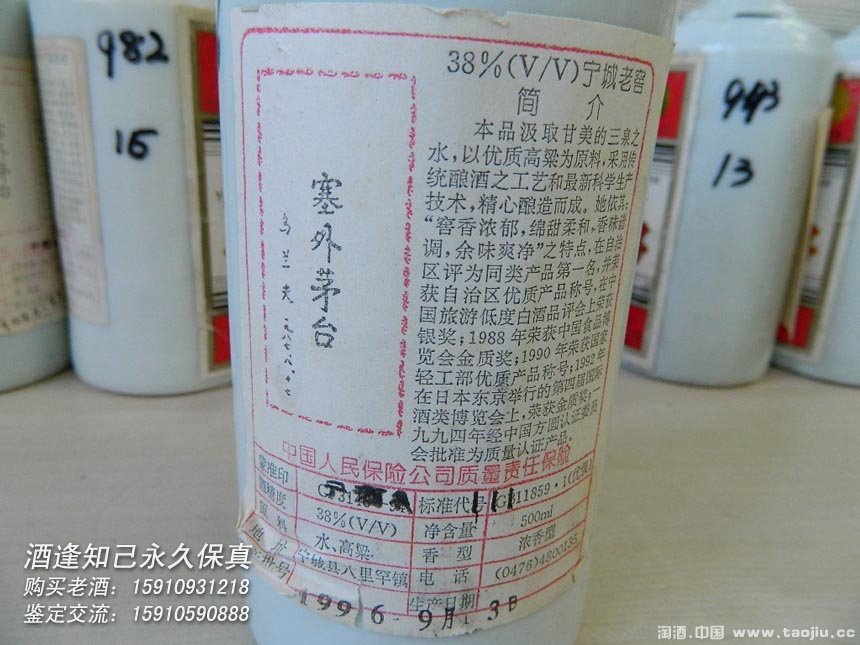 982
15
943
13
38%(V/V)宁城老窖
简 介
本品汲取甘美的三泉之
水,以优质高粱为原料,采用传
统酿酒之工艺和最新科学生产
技术,精心酿造而成。她依其:
“窖香浓郁,绵甜柔和,香味谐
调,余味爽净”之特点,在自治
区评为同类产品第一名,并荣
获自治区优质产品称号,在中
国旅游低度白酒品评会上荣获
银奖;1988年荣获中国食品博
览会金质奖;1990年荣获国家
轻工部优质产品称号;1992年
在日本东京举行的第四届国际
酒类博览会上,荣获金质奖;一
九九四年经中国方圆认证委员
会批准为质量认证产品。
塞外茅台
乌兰夫 一九八七、八、十七
中国人民保险公司质量责任保险
蒙准印
标准代号 GB11859·1(优级)
酒精度 38%(V/V) 净含量 500ml
原料 水、高粱 香型 浓香型
地址 宁城县八里罕镇 电话 (0476)4800135
生产日期
1996 9月 3日
酒逢知己永久保真
购买老酒:15910931218
鉴定交流:15910590888
淘酒.中国 www.taojiu.cc